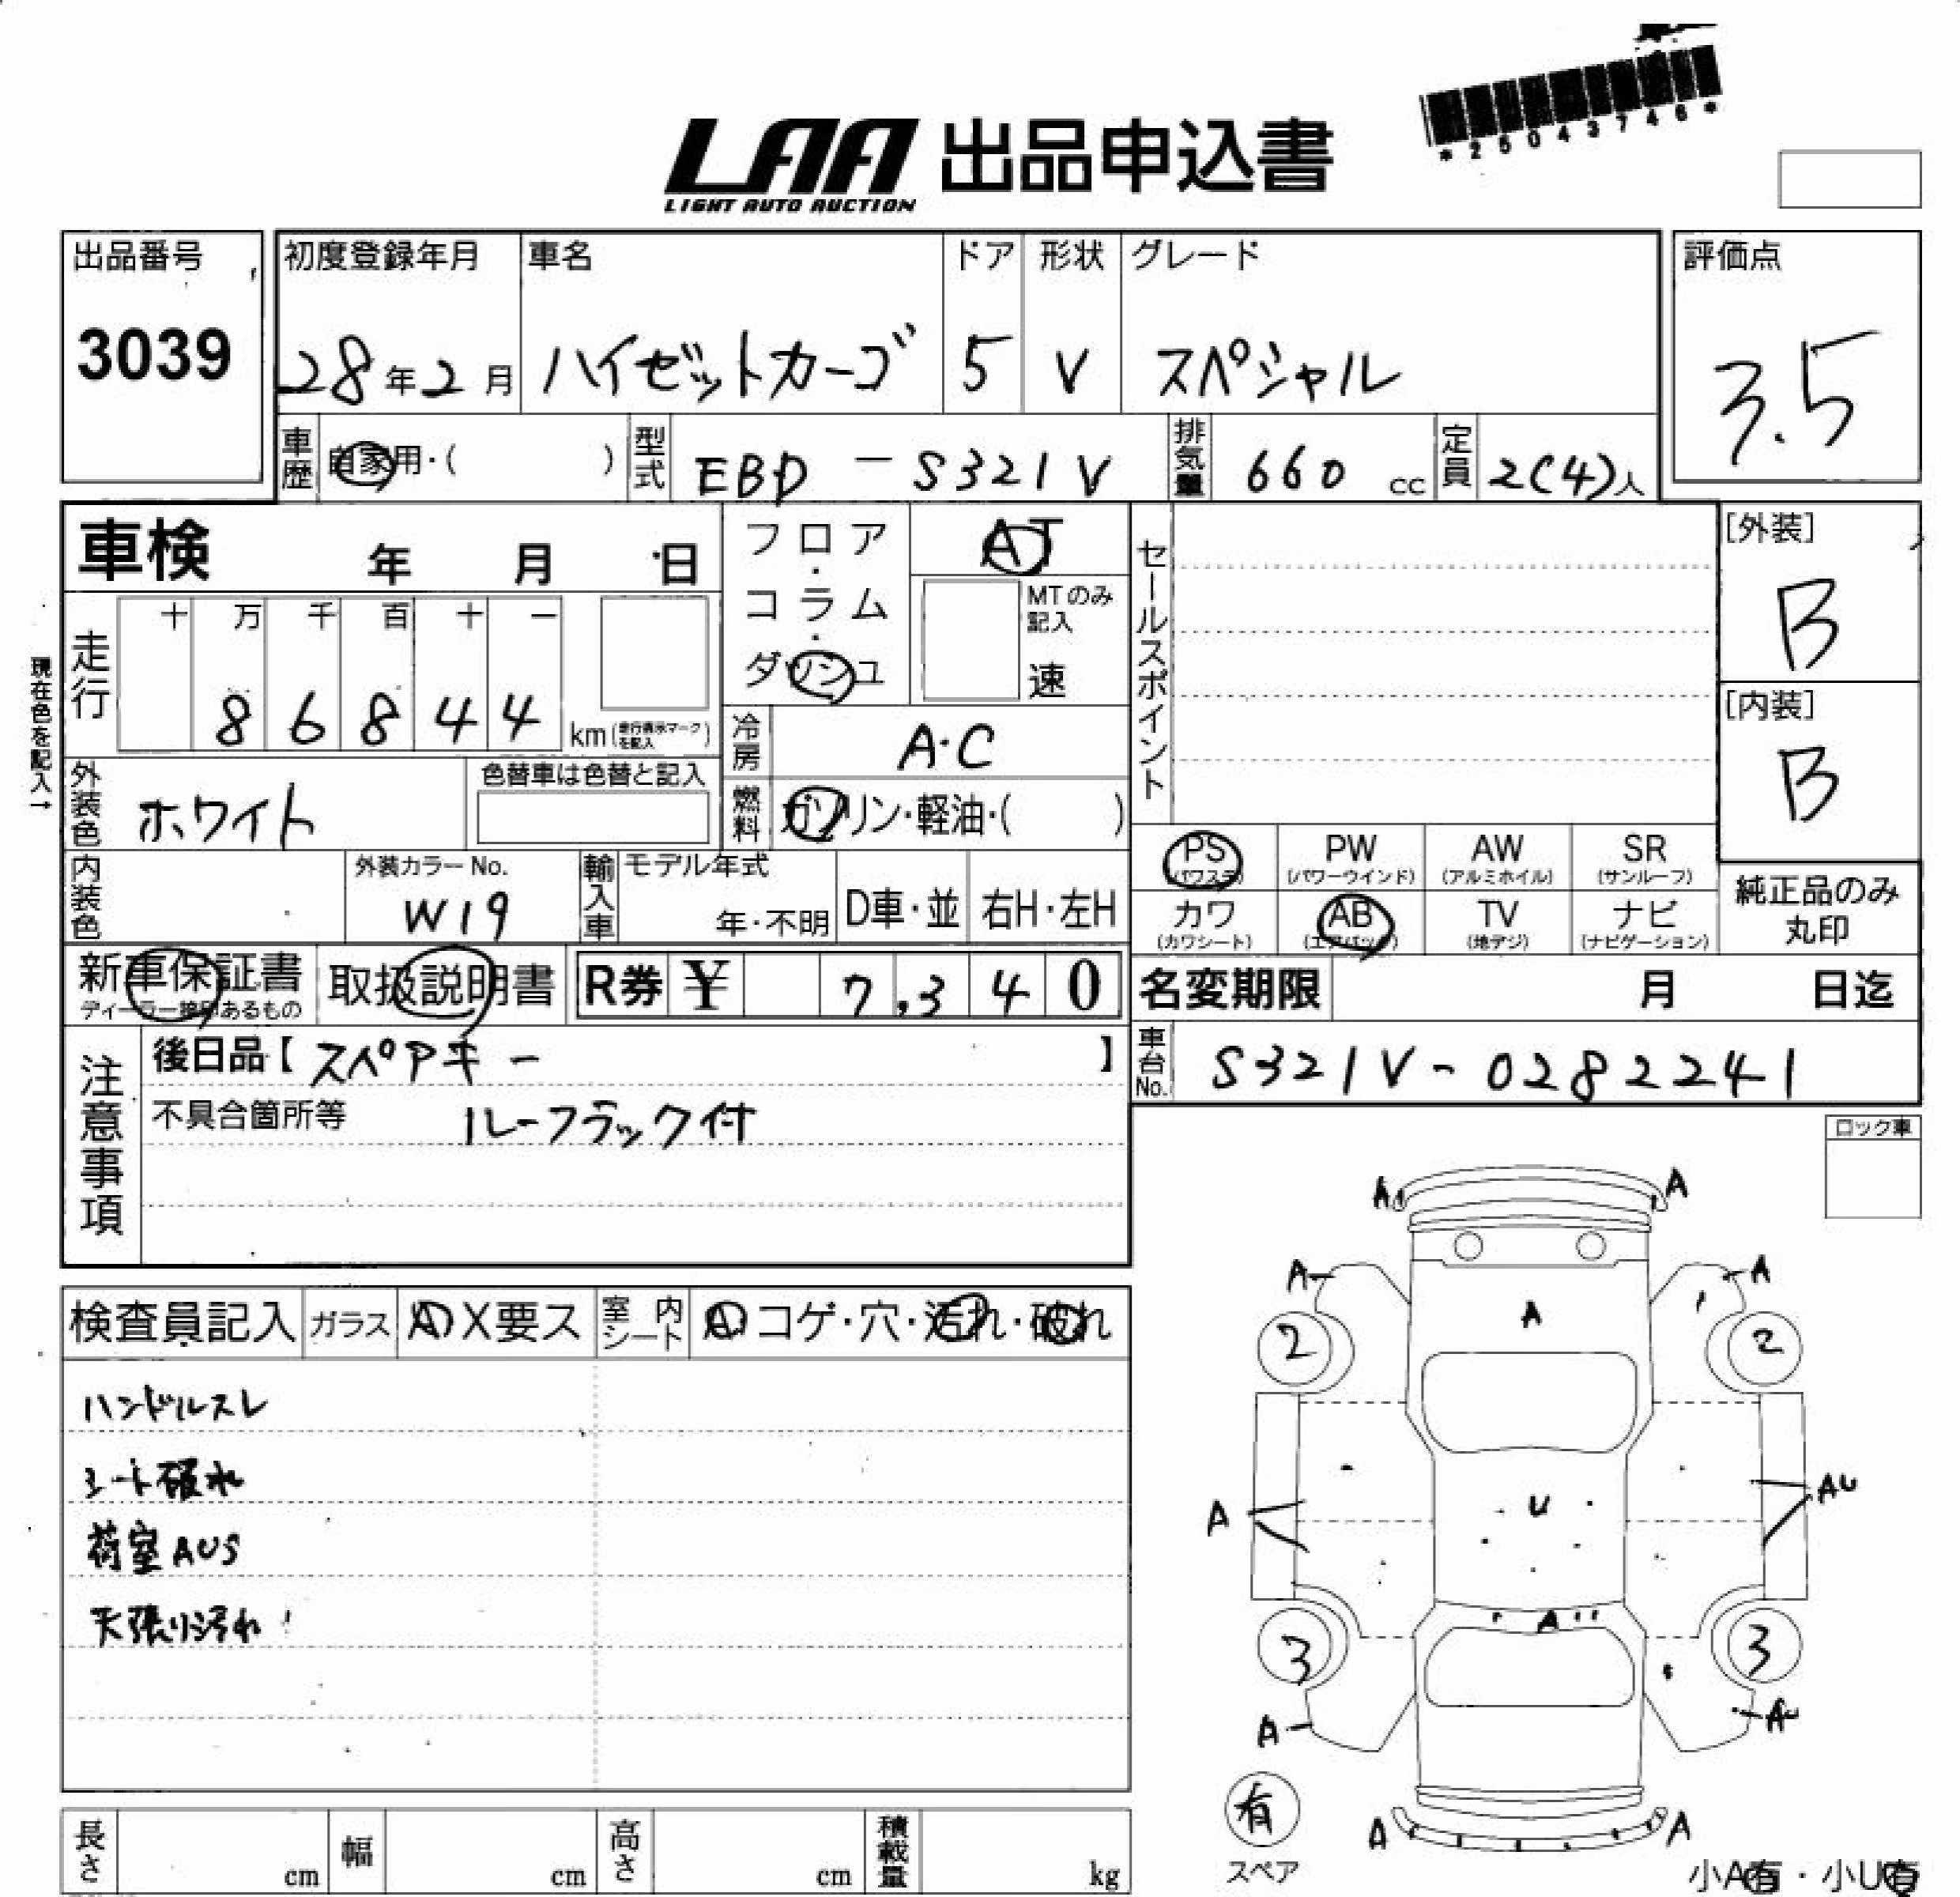 *25043746*
LAA 出品申込書
LIGHT AUTO AUCTION
出品番号 初度登録年月 車名 ドア 形状 グレード 評価点
3039 28年2月 ハイゼットカーゴ 5 V スペシャル 3.5
車歴 自家用・( ) 型式 EBD－S321V 排気量 660 cc 定員 2(4)人
車検 年 月 日 フロア・コラム・ダッシュ AT セールスポイント [外装]
B
MTのみ記入 速
現在色を記入→
走行 十 万 千 百 十 一
8 6 8 4 4 km(走行表示マークを記入) [内装]
B
冷房 A・C
外装色 ホワイト 色替車は色替と記入 燃料 ガソリン・軽油・( )
PS (パワステ) PW (パワーウインド) AW (アルミホイル) SR (サンルーフ)
内装色 外装カラーNo. W19 輸入車 モデル年式 年・不明 D車・並 右H・左H
カワ (カワシート) AB (エアバック) TV (地デジ) ナビ (ナビゲーション) 純正品のみ丸印
新車保証書 ディーラー捺印あるもの 取扱説明書 R券 ¥ 7,340 名変期限 月 日迄
注意事項 後日品【スペアキー 】 車台No. S321V-0282241
不具合箇所等 ルーフラック付
ロック車
検査員記入 ガラス A・X要ス 室内シート A・コゲ・穴・汚れ・破れ
ハンドルスレ
シート破れ
荷室AUS
天張り汚れ
A A
A A
A
2 2
A U AU
A
3 3
A AU
有
スペア
A A
長さ cm 幅 cm 高さ cm 積載量 kg
小A有・小U有